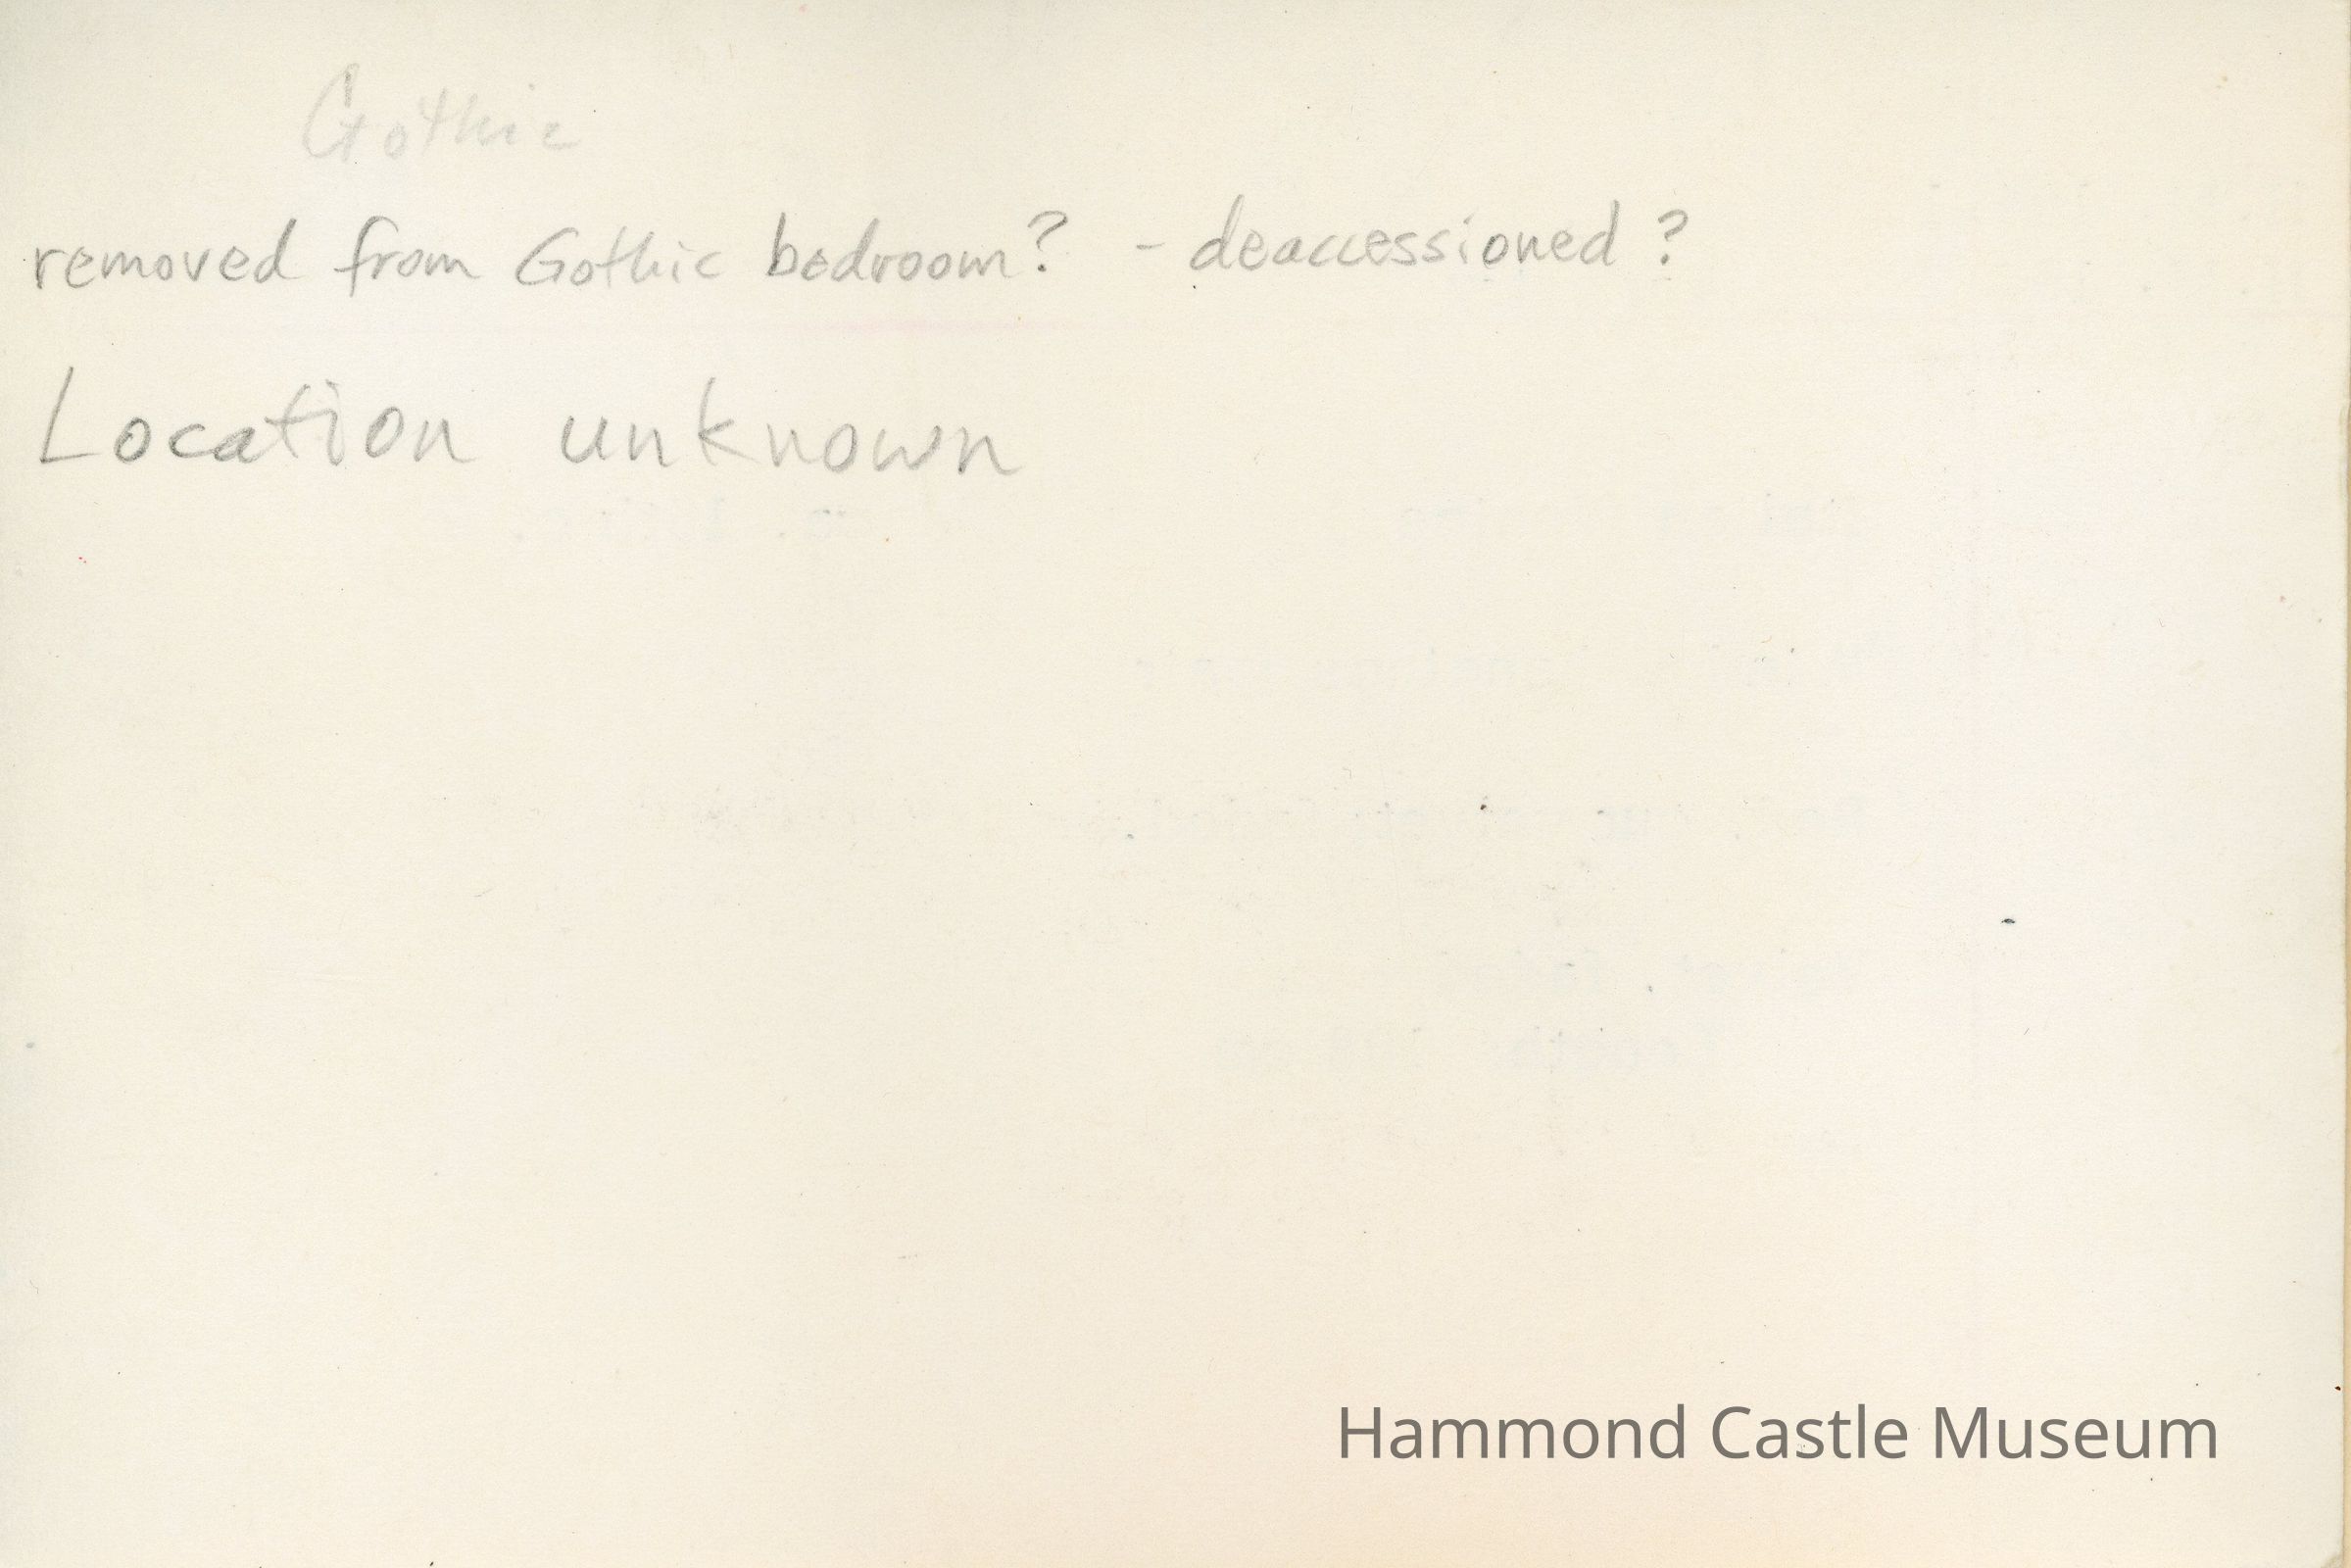 Gothic
removed from Gothic bedroom? - deaccessioned?
Location unknown
Hammond Castle Museum